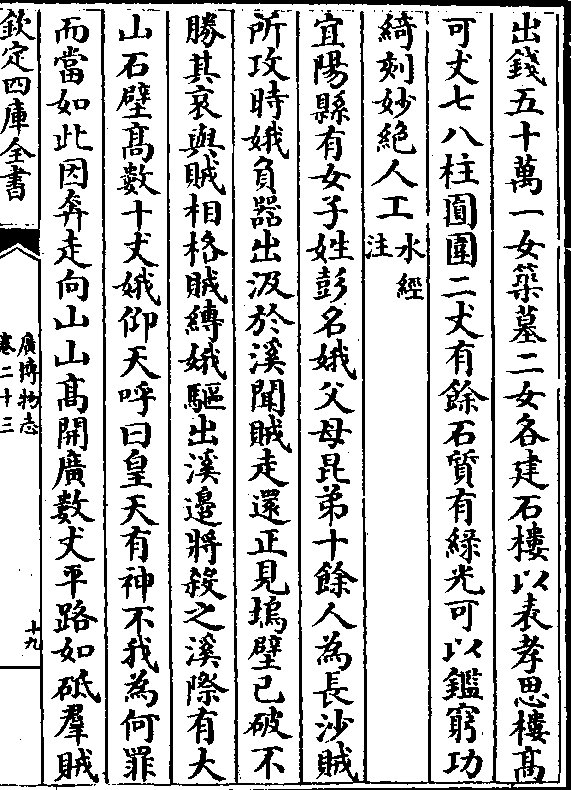 出錢五十萬一女築墓二女各建石樓以表孝思樓髙
可丈七八柱圓圍二丈有餘石質有綠光可以鑑窮功
綺刻妙絶人工水經注
宜陽縣有女子姓彭名娥父母昆弟十餘人為長沙賊
所攻時娥負器出汲於溪聞賊走還正見塢壁已破不
勝其哀與賊相格賊縛娥驅出溪邉將殺之溪際有大
山石壁髙數十丈娥仰天呼曰皇天有神不我為何罪
而當如此因奔走向山山髙開廣數丈平路如砥羣賊
欽定四庫全書
廣博物志
卷二十三
十九